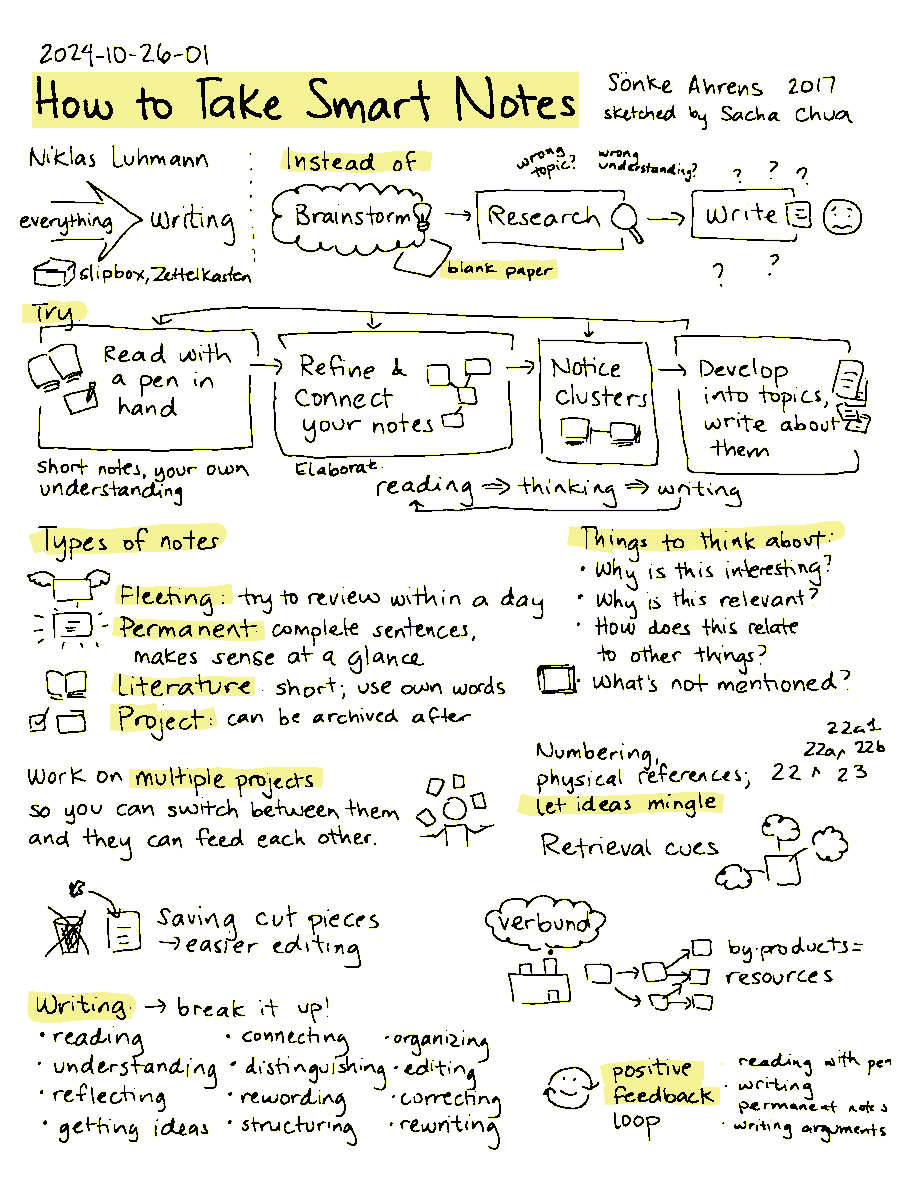 2024-10-26-01
How to Take Smart Notes
Sönke Ahrens 2017
sketched by Sacha Chua
Niklas Luhmann
everything
writing
slipbox, Zettelkasten
Instead of
Brainstorm
blank paper
wrong
topic?
Research
wrong
understanding?
Write
? ? ?
? ?
Try
Read with
a pen in
hand
short notes, your own
understanding
Refine &
connect
your notes
Elaborat.
Notice
clusters
Develop
into topics,
write about
them
reading ⇒ thinking ⇒ writing
Types of notes
Fleeting: try to review within a day
Permanent complete sentences,
makes sense at a glance
Literature short; use own words
Project: can be archived after
Things to think about:
• Why is this interesting?
• Why is this relevant?
• How does this relate
to other things?
• What's not mentioned?
Work on multiple projects
so you can switch between them
and they can feed each other.
Numbering,
physical references;
let ideas mingle
22a1
22a ^ 22b
22 ^ 23
Retrieval cues
Saving cut pieces
→ easier editing
verbund
by-products =
resources
Writing → break it up!
• reading
• understanding
• reflecting
• getting ideas
• connecting
• distinguishing
• rewording
• structuring
• organizing
• editing
• correcting
• rewriting
positive
feedback
loop
• reading with pen
• writing
permanent notes
• writing arguments